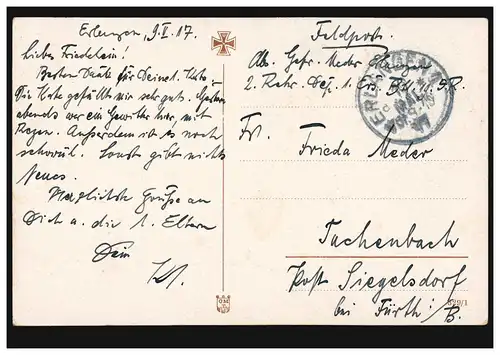 Erlangen, 9.V.17.
Liebes Friedelein!
Besten Dank für Deine l. Karte.
Die Karte gefällt mir sehr gut. Gestern
abends war ein Gewitter hier, mit
Regen. Außerdem ist es noch
schwül. Sonst gibt nichts
Neues.
Herzlichste Grüße an
Dich u. die l. Eltern
Dein
Feldpost.
Abs. Gefr. Meder
2. Rekr. Dep. 1. Ers. Btl. 19. I.R.
ERLANGEN
Frl.
Frieda Meder
Tuchenbach
Post Siegelsdorf
bei Fürth i/B.
529/1